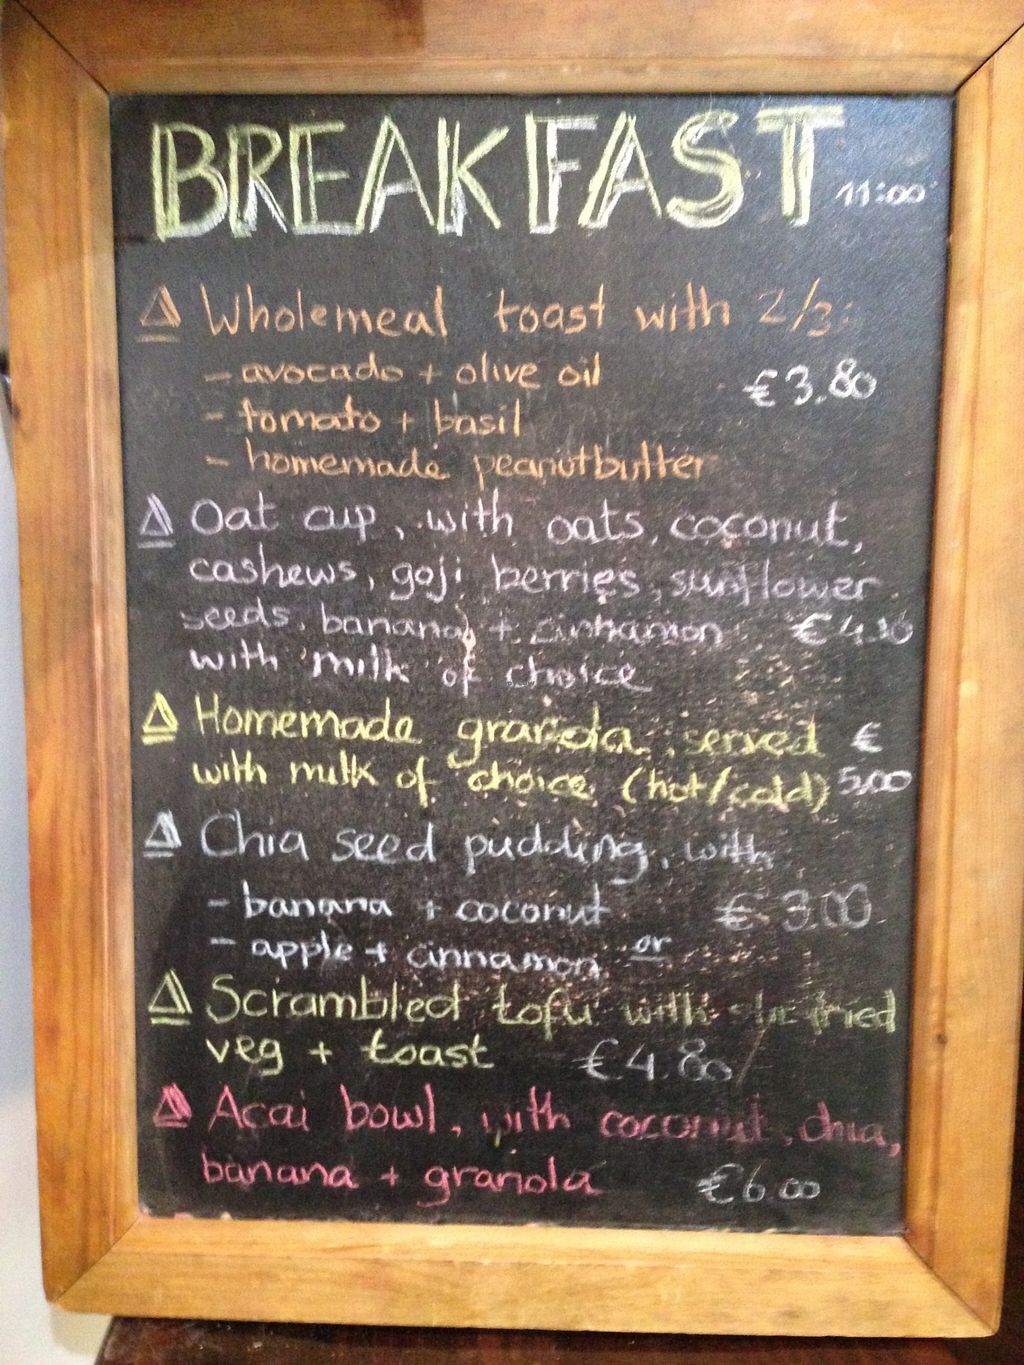 BREAKFAST 11:00
Wholemeal toast with 2/3:
- avocado + olive oil €3.80
- tomato + basil
- homemade peanutbutter
Oat cup, with oats, coconut,
cashews, goji berries, sunflower
seeds, banana, + cinnamon
with milk of choice
Homemade granola, served €
with milk of choice (hot/cold) 5,00
Chia seed pudding, with
- banana + coconut €3.00
- apple + cinnamon or
Scrambled tofu with fried
veg + toast €4.80
Acai bowl, with coconut, chia,
banana + granola €6.00